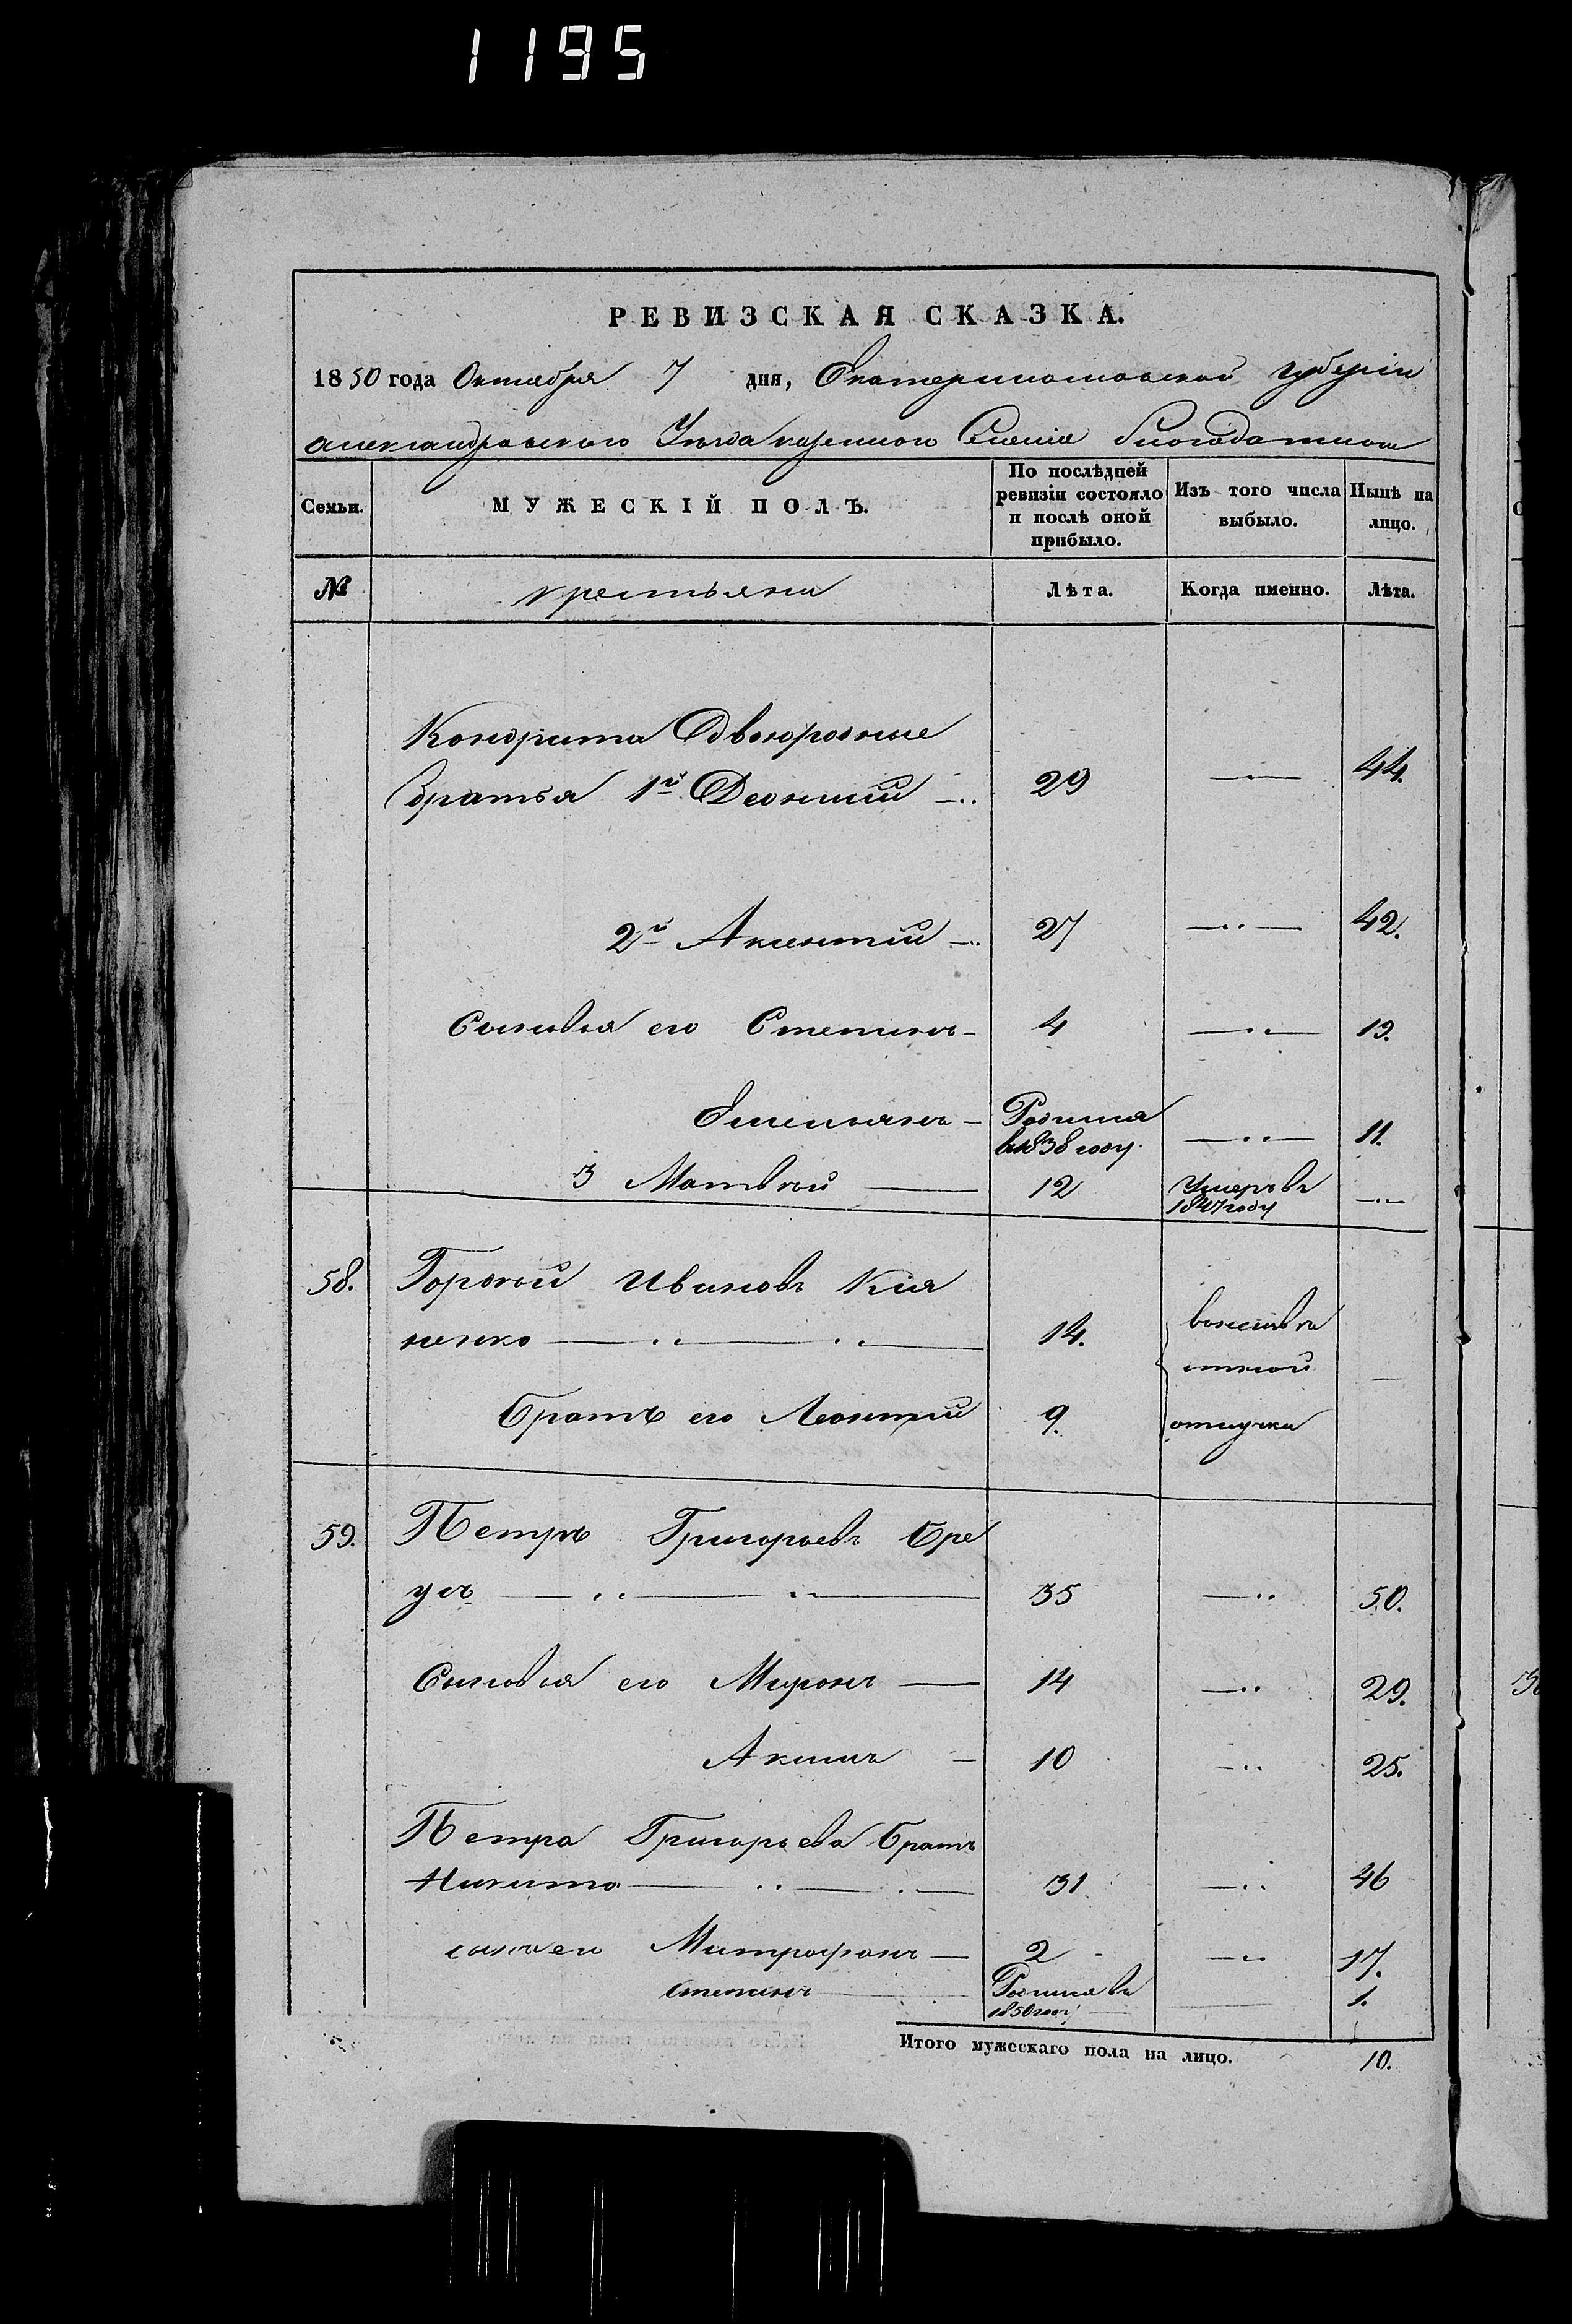 1195
РЕВИЗСКАЯ СКАЗКА.
1850 года Октября 7 дня, Екатеринославской губерніи
Александровскаго Уѣзда казеннаго Селенія Благодатнаго
Семьи.
МУЖЕСКІЙ ПОЛЪ.
По послѣдней ревизіи состояло и послѣ оной прибыло.
Изъ того числа выбыло.
Нынѣ на лицо.
№
крестьяни
Лѣта.
Когда именно.
Лѣта.
Кондрата Двоюродные
братья 1й Леонтий 29 44.
2й Аксентий 27 42.
Сыновья его Степанъ 4 19.
Емельянъ Родился в 1838 году 11.
3 Матвѣй 12 Умеръ въ 1847 году
58. Гордѣй Ивановъ Кия
ненко 14.
Братъ его Леонтий 9. отлучки
59. Петръ Григорьевъ Бре
усъ 35 50.
Сыновья его Миронъ 14 29.
Акимъ 10 25.
Петра Григорьева братъ
Никита 31 46
сынъ его Митрофанъ 2 17.
Степанъ Родился въ 1850 году 1.
Итого мужескаго пола на лицо. 10.